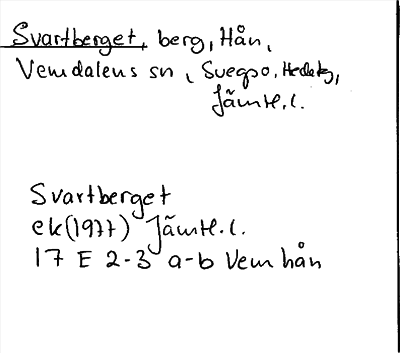 Svartberget, berg, Hån,
Vemdalens sn, Svegso, Hedetg,
Jämtl.l.
Svartberget
ek(1977) Jämtl.l.
17 E 2-3 a-b Vemhån